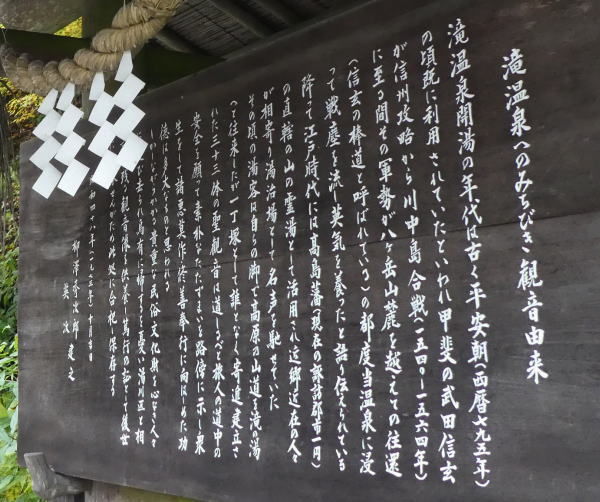 滝温泉へのみちびき観音由来
滝温泉開湯の年代は古く平安朝(西暦七九五年)
の頃既に利用されていたといわれ甲斐の武田信玄
が信州攻略から川中島合戦(一五四〇~一五六四年)
に至る間その軍勢が八ヶ岳山麓を越えての往還
(信玄の棒道と呼ばれている)の都度当温泉に浸
って戦塵を流し英気を養ったと語り伝えられている
降って江戸時代には高島藩(現在の諏訪郡市一円)
の直轄の山の霊湯として活用され近郷近在の人々
が相寄り湯治場として名声を馳せていた
その頃の湯客は自らの脚で高原の山道を滝の湯
へ往来したが一丁塚として誰となく寄進建立さ
れた三十三体の聖観音は道しるべと旅人の道中の
安全を願って素朴なたたずまいを路傍に示し衆
生をして諸悪莫作修善奉行に向はめた功
徳は多大なものと思われる
貴重な民俗文化財を心なき人々
憂い湯川区と相
観音像を供養し篤行の
此処に合祀し保存する
年(一九五三年)十月吉日
柳澤
英次 建之